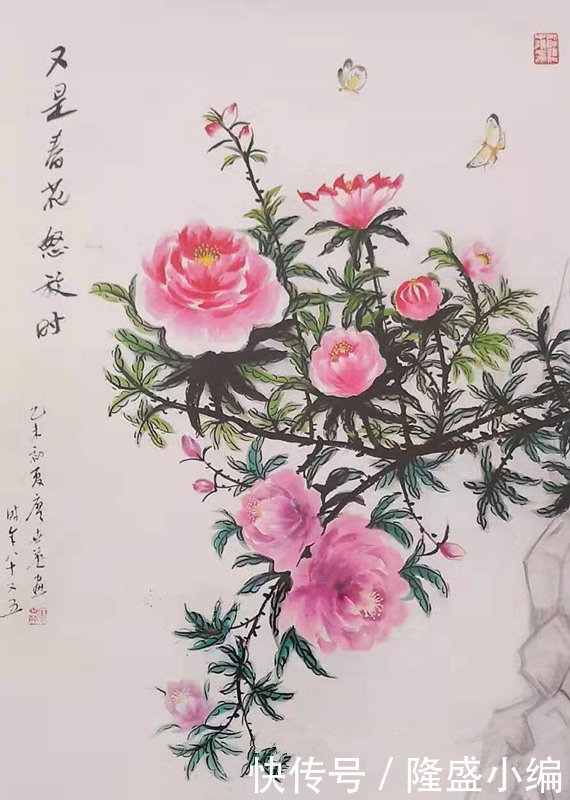 又是春花怒放时
乙未初夏唐画
时年八十又五
快传号 / 隆盛小编